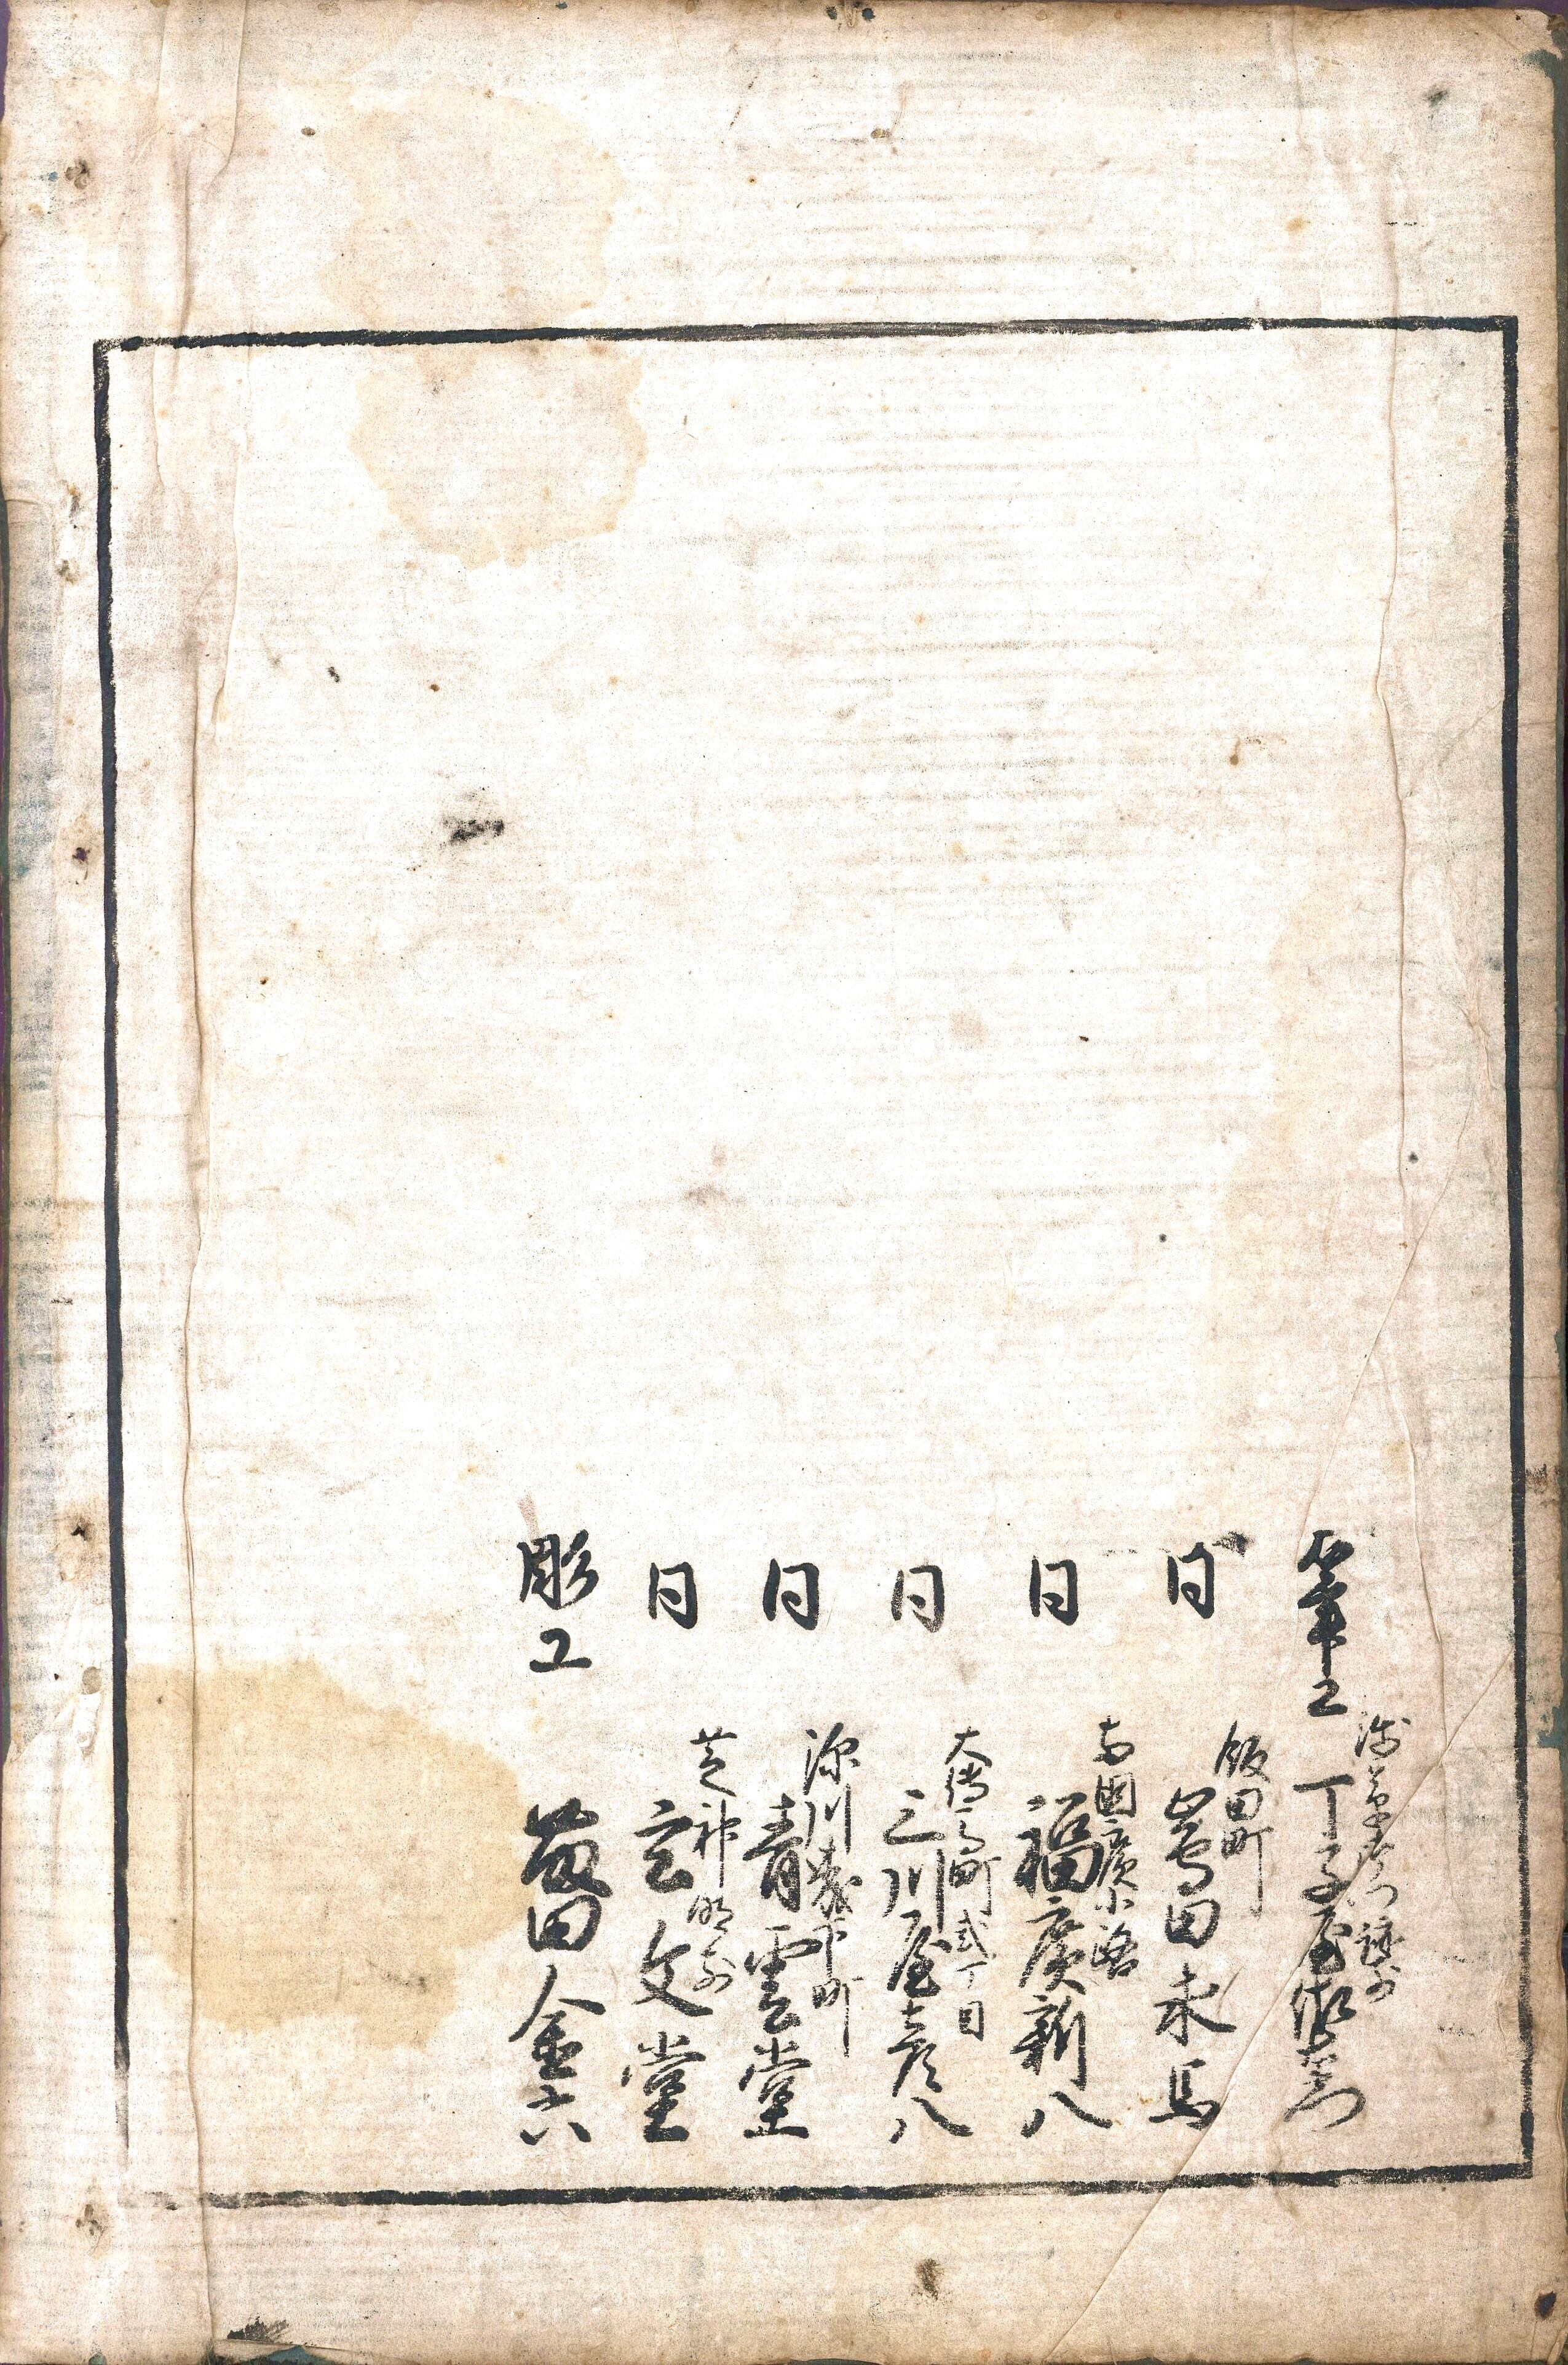 筆工
浅草
丁子屋
同
飯田町
嶌田永馬
同
両国廣小路
福廣新八
同
大傳馬町弐丁目
三川屋彦八
同
深川森下町
青雲堂
同
芝神明前
玄文堂
彫工
田金六